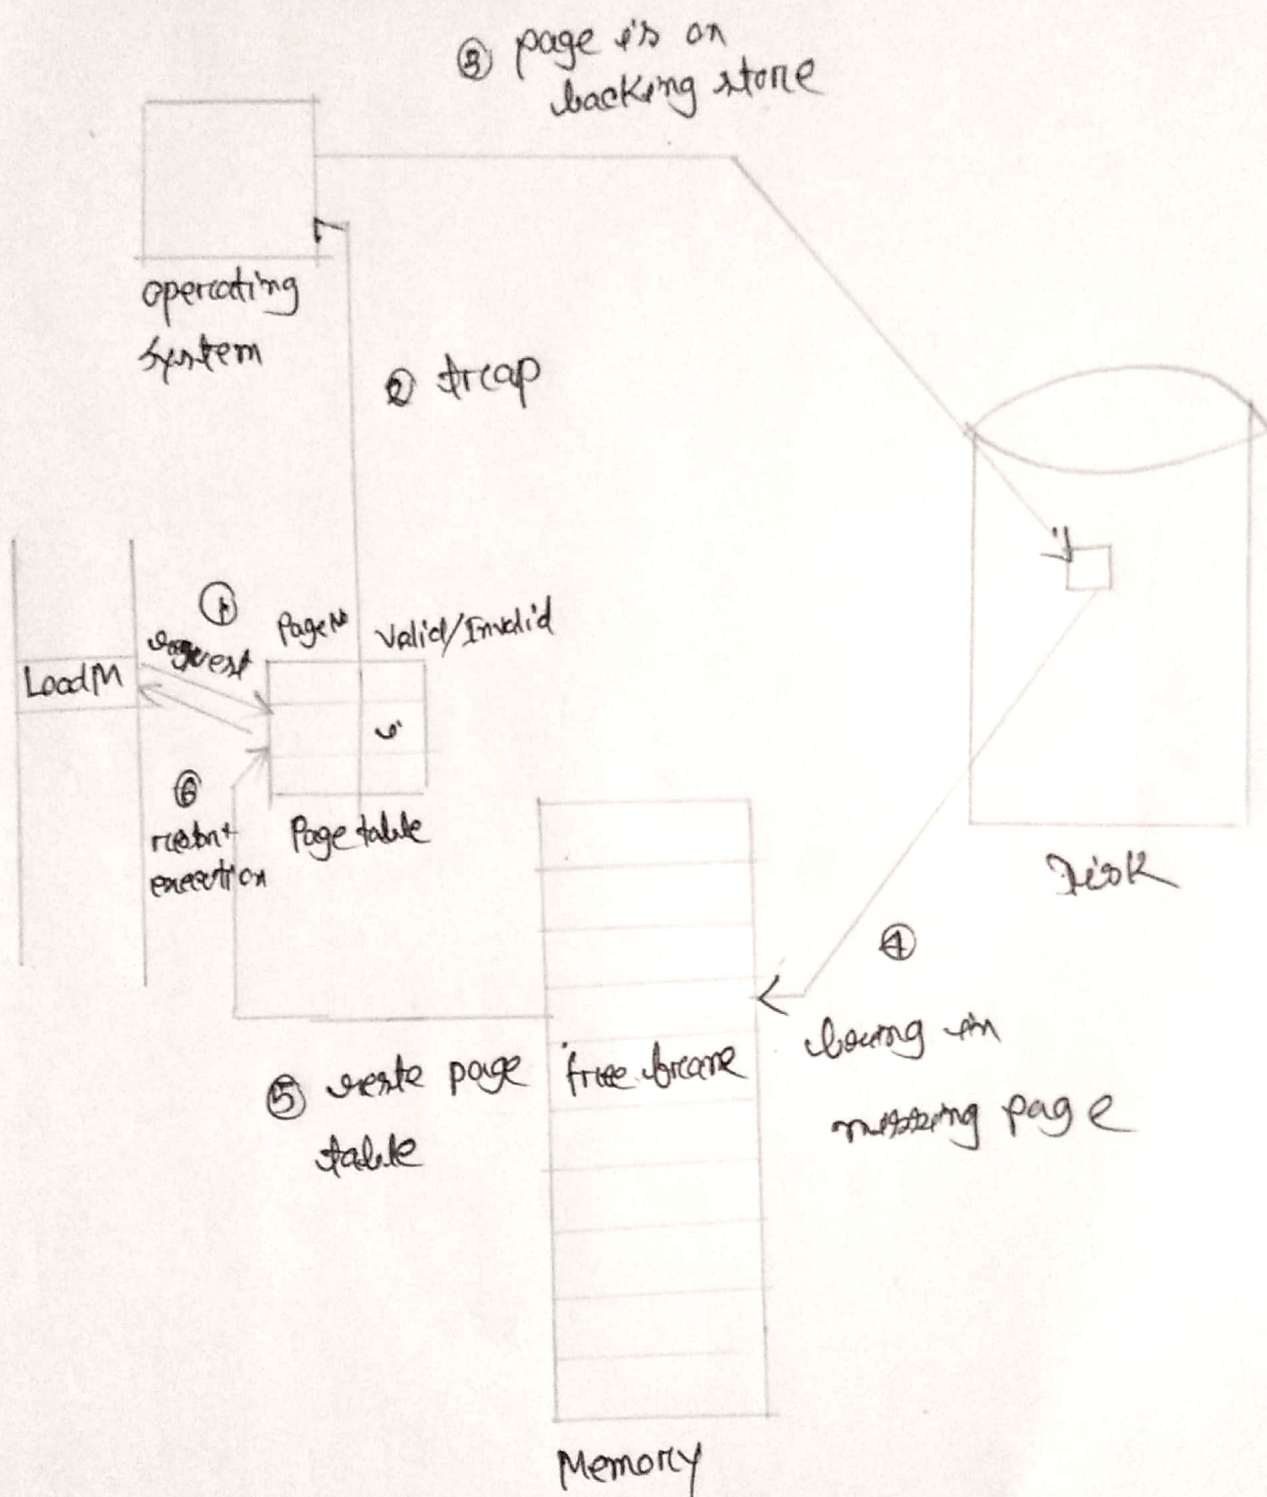 ③ page is on
backing store
operating
system
② trap
①
request
Page No
Valid/Invalid
Load M
i
⑥
restart
execution
Page table
Disk
④
bring in
missing page
⑤ reste page
table
free frame
Memory